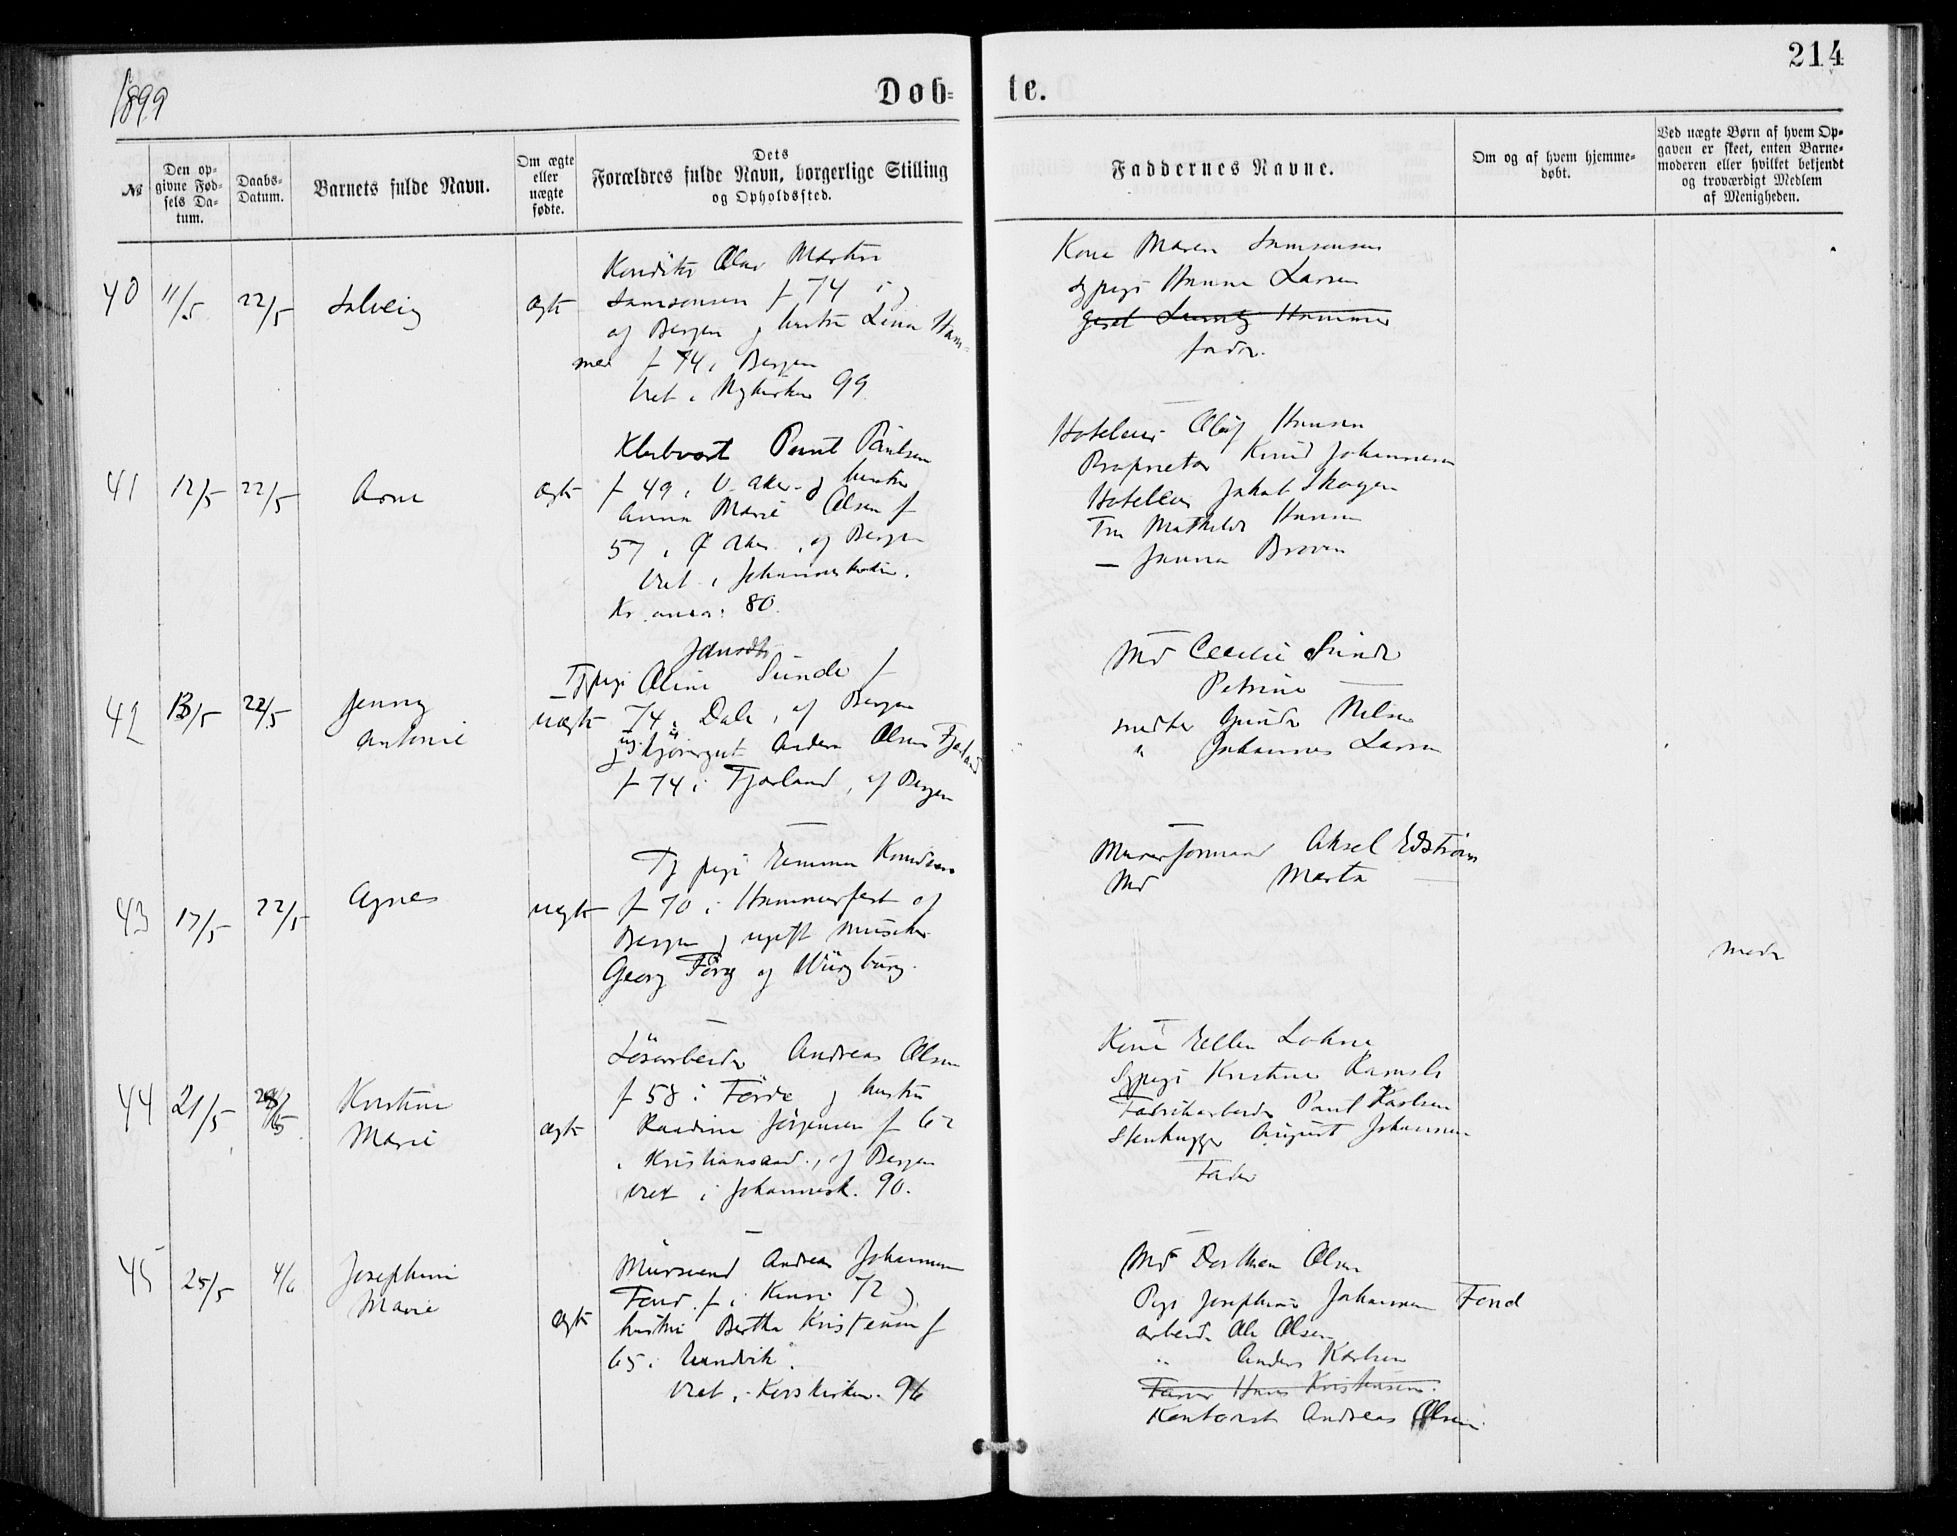 1899
Døb=
te.
214
№
Den op=
givne Fød=
sels Da=
tum.
Daabs=
Datum.
Barnets fulde Navn.
Om ægte
eller
nægte
fødte.
Dets
Forældres fulde Navn, borgerlige Stilling
og Opholdssted.
Faddernes Navne.
Om og af hvem hjemme=
døbt.
Ved nægte Børn af hvem Op=
gaven er skeet, enten Barne=
moderen eller hvilket bekjendt
og troværdigt Medlem
af Menigheden.
40 11/5 22/5 Solveig ægte
Konditor Olav Martin
Samsonsen f 74 i
af Bergen hustru Lina Ham=
mer f 74 i Bergen
Viet i Nykirken 99
Kone Maren Samsonsen
Sypige Hanna Larsen
Hammer
fader.
41 12/5 22/5 Arne ægte
Paul Paulsen
f 49 i V. Aker og hustru
Anna Marie Olsen f
57 i Ø Aker, af Bergen
Viet i Johanneskirken.
Kr. ania: 80.
Hoteleier Oluf Hansen
Proprietær Knud Johannesen
Hoteleier Jakob Skagen
Fru Mathilde Hansen
— Janna Broven
42 13/5 22/5 Jenny
Antonie uægte
Jansdtr
Tjpige Oline Sunde f
74 i Dale, af Bergen
og ug. kjøregut Anders Olsen Fjærland
f 74 i Fjærland, af Bergen
Md Cecilie Sunde
Petrine —
Johannes Larsen
43 17/5 22/5 Agnes uægte
Tj pige Emma Knudsen
f 70 i Hammerfest af
Bergen og ugift musiker
Georg Förg af Würzburg.
Murerformand Aksel Edström
Md Marta —
Moder
44 21/5 Kristine
Marie ægte
Løsarbeider Andreas Olsen
f 58 i Førde og hustru
Raadine Jørgensen f 62
i Kristiansand, af Bergen
Viet i Johannesk. 90.
Kone Ellen Lohne
Sypige Kristine
Fabrikarbeider Paul Karlsen
Stenhugger August Johannesen
Fader
45 25/5 4/6 Josephine
Marie ægte
Mursvend Andreas Johannesen
Fond f. i Kinn 72 og
hustru Bertha Kristensen f
65 i
Viet i Korskirken 96
Md Dorthea Olsen
Pige Josephine Johannesen Fond
arbeider Ole Olsen
" Anders Karlsen
Hans Kristensen.
Kontorist Andreas Olsen